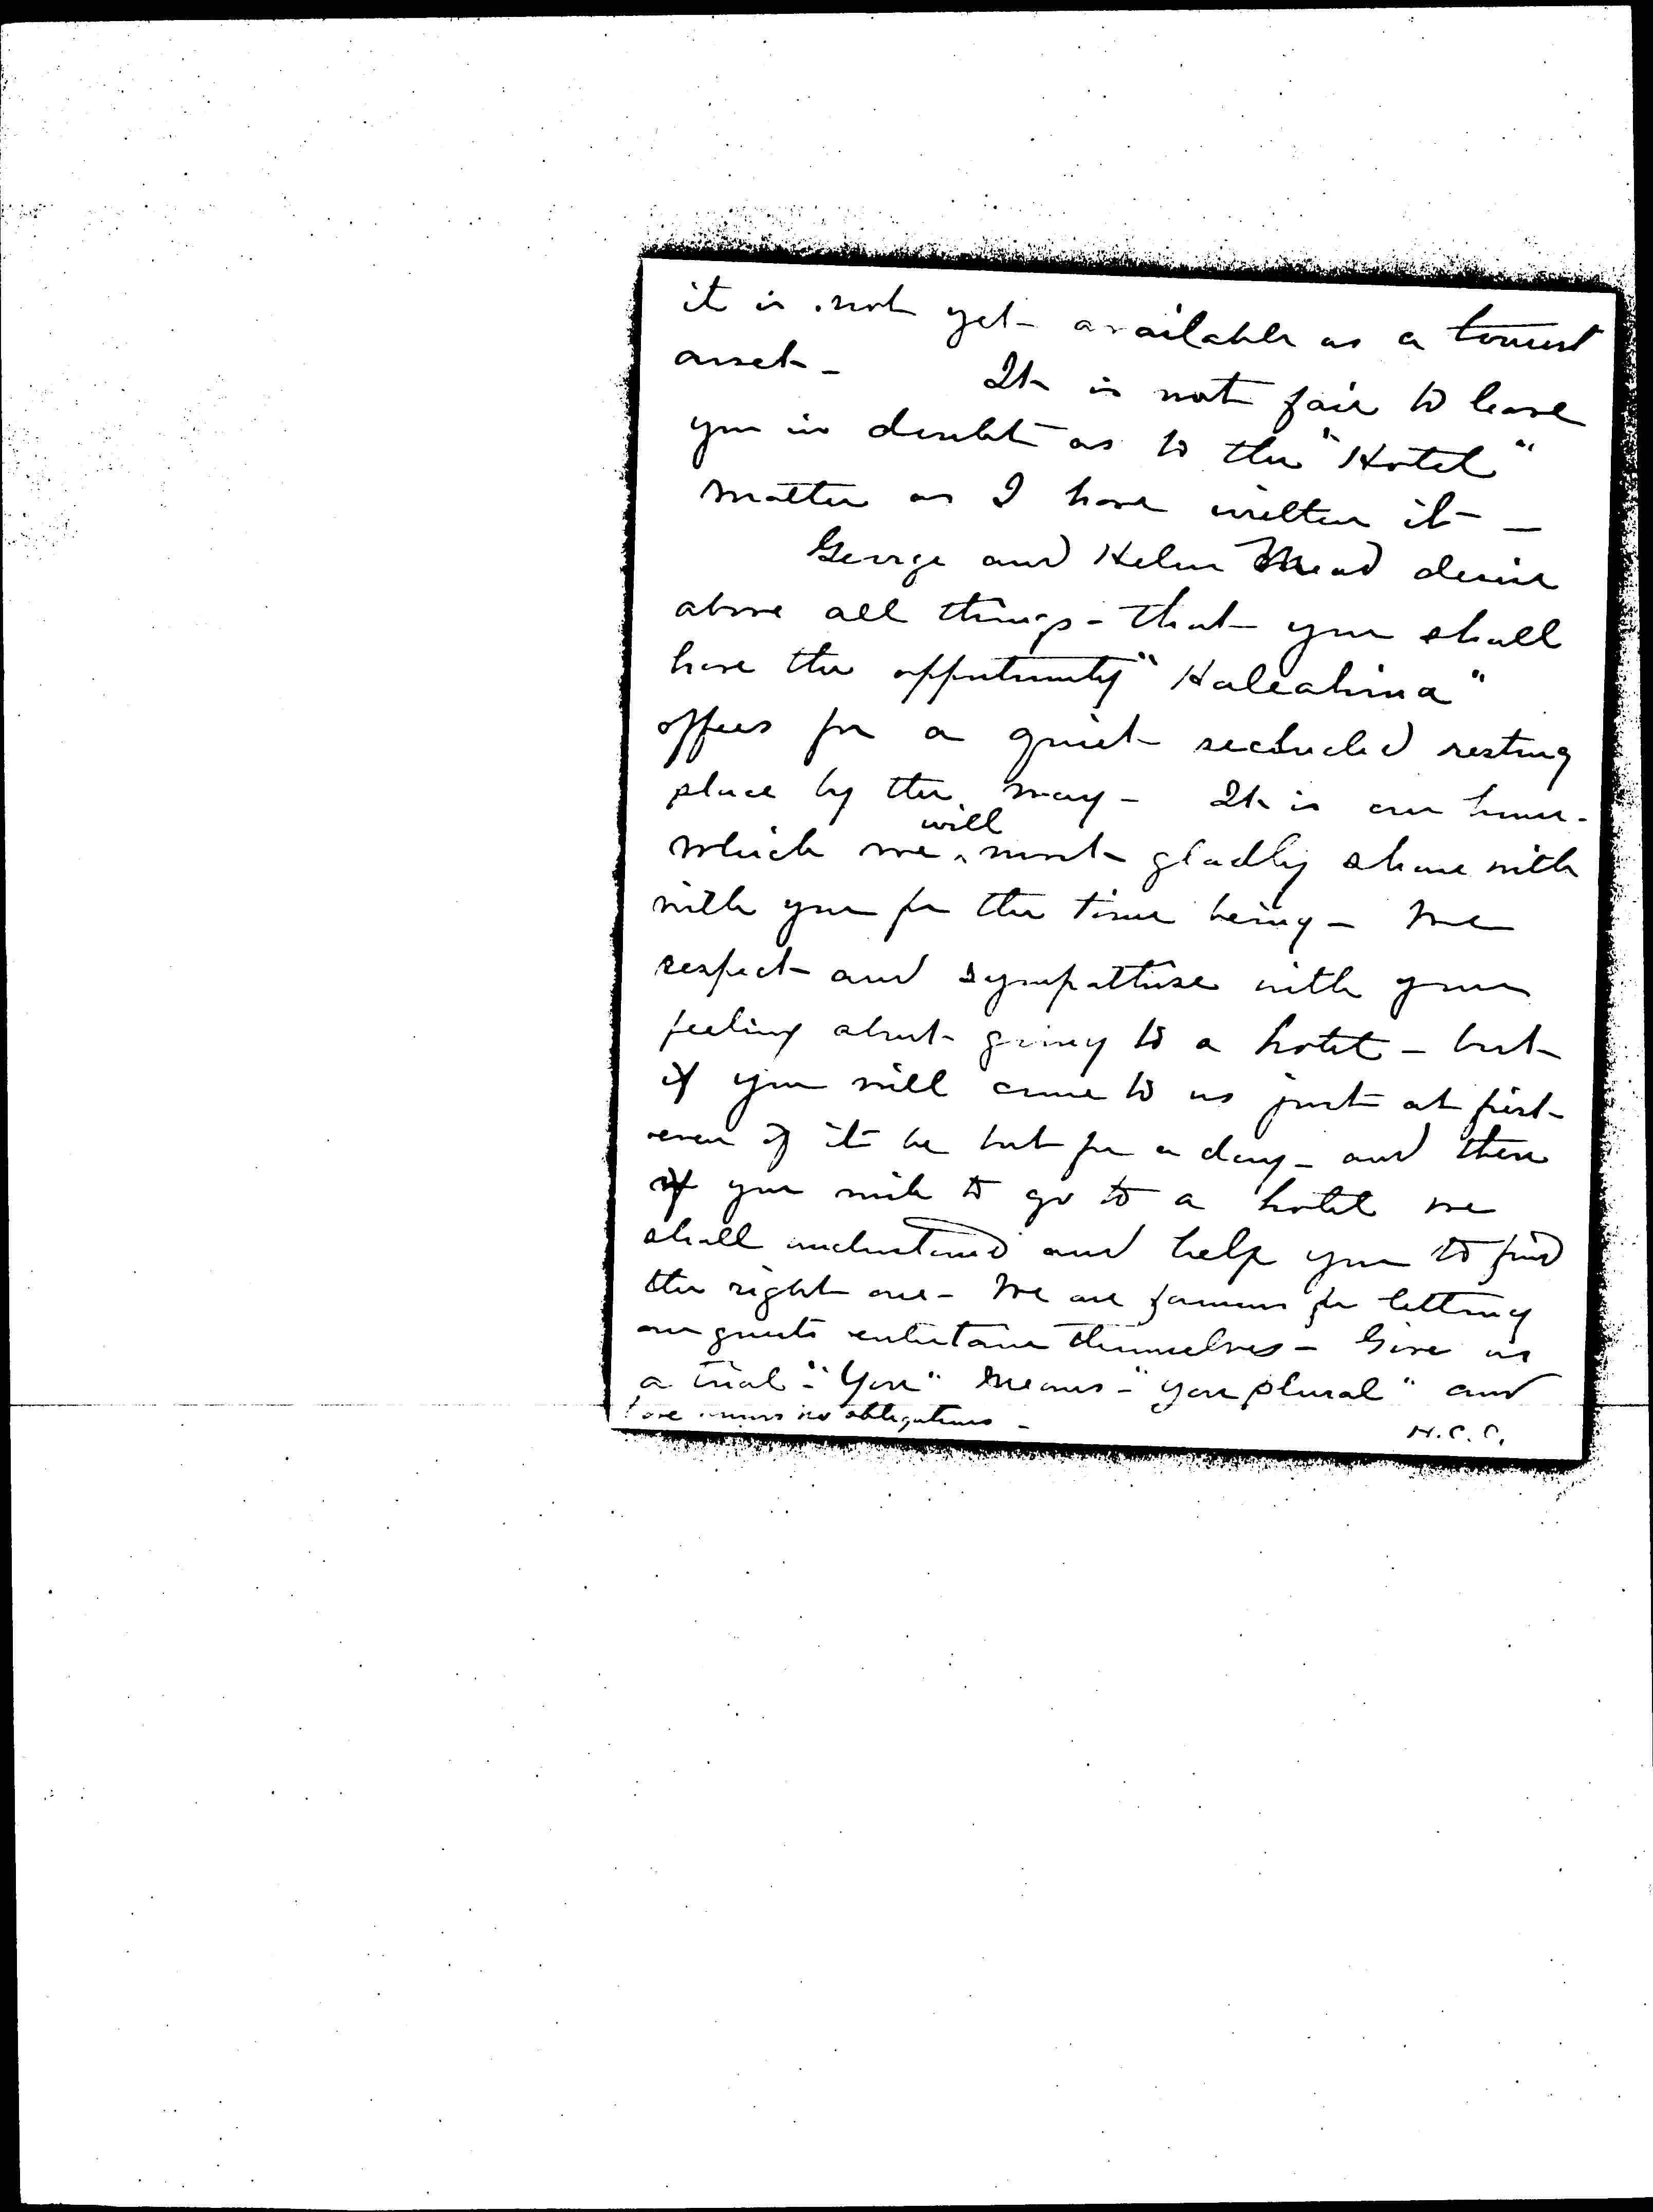 it is not yet available as a tourist
asset - It is not fair to leave
you in doubt as to the "Hotel"
matter as I have written it -
George and Helen Mead desire
above all things - that you shall
have the opportunity "Haleahina"
offers for a quiet secluded resting
place by the way - It is our home -
will
which we most gladly share with
with you for the time being - We
respect and sympathise with your
feeling about going to a hotel - but
if you will come to us just at first -
even if it be but for a day - and then
if you wish to go to a hotel we
shall understand and help you to find
the right one - We are famous for letting
our guests entertain themselves - Give us
a trial - "You" means - "you plural" and
no obligations -
H.C.C.